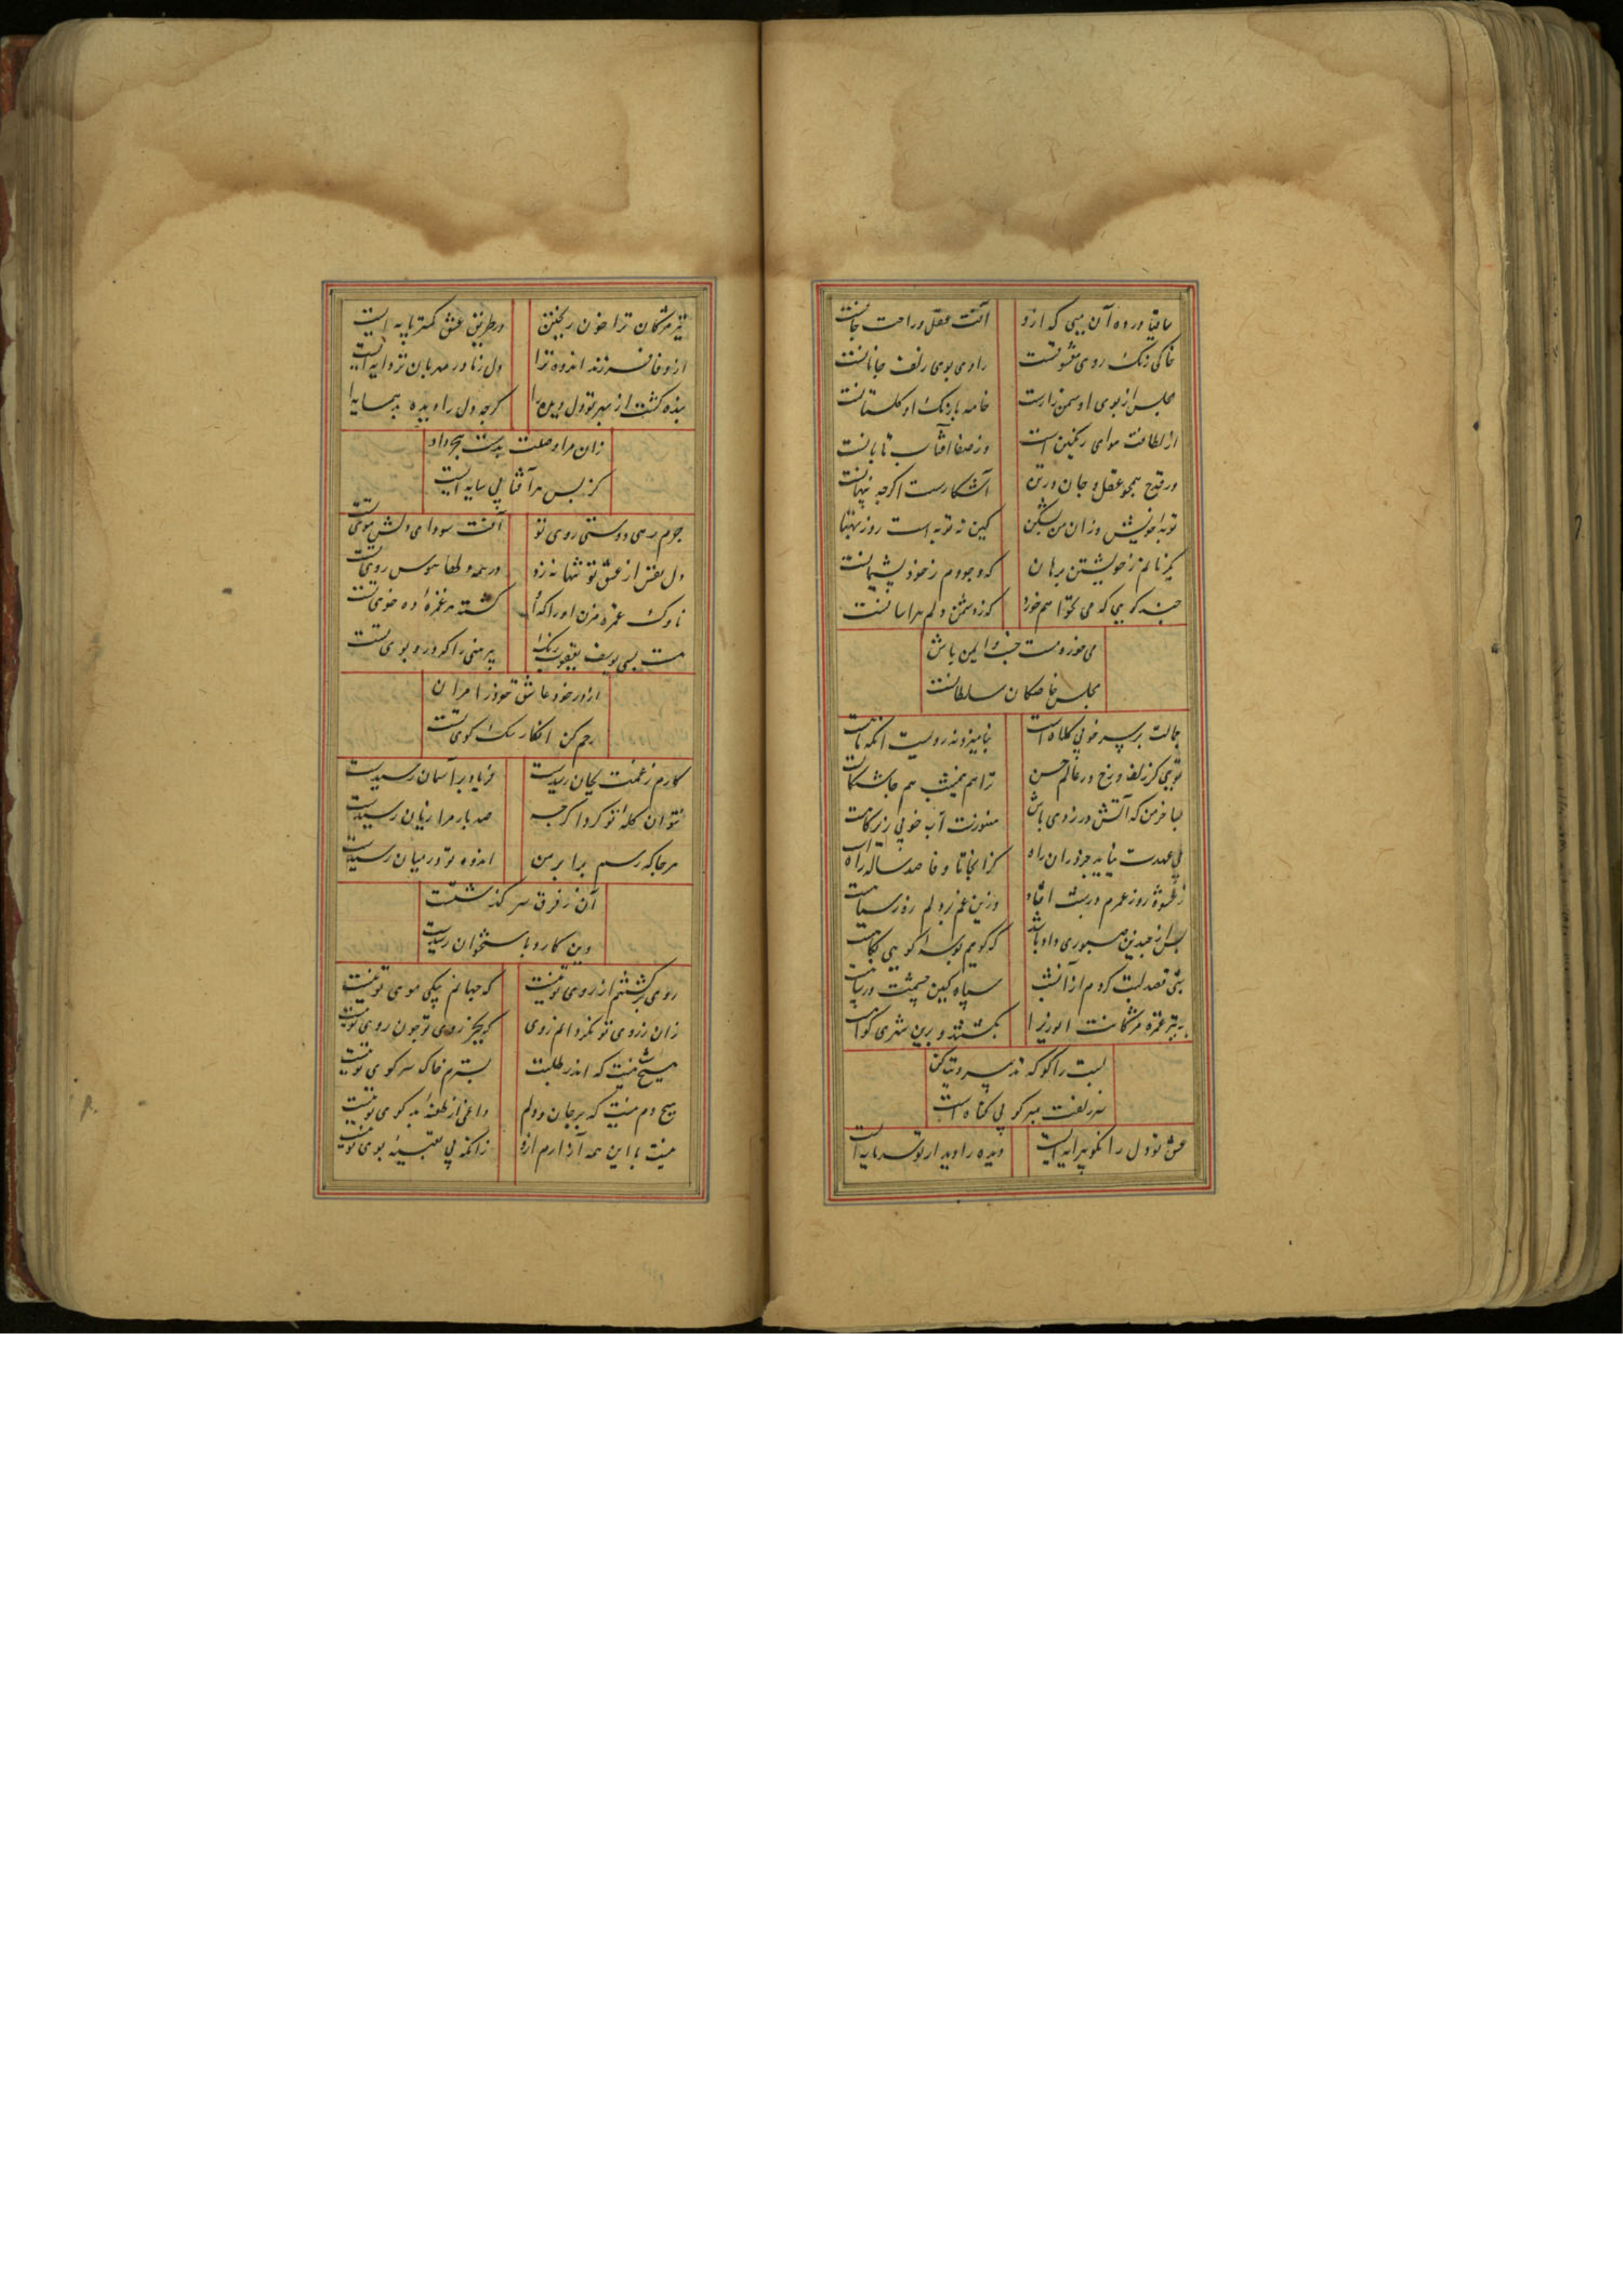 ساقیا در ده آن میی که ازو آفت عقل و راحت جانست
حاکی رنگ روی معشوقست راوی بوی زلف جانانست
مجلس از بوی او سمن زارست خامه با رنگ او گلستانست
از لطافت هوای رنگین است وز صفا آفتاب تابانست
در قدح همچو عقل و جان در تن آشکارست اگرچه پنهانست
توبهٔ خویش و زان من بشکن کین نه توبه است روز بهتانست
یکزمانم ز خویشتن برهان که وجودم ز خود پشیمانست
چند گویی که می نخواهم خورد که ز دشمن دلم هراسانست
می خور و مست خسب و ایمن باش
مجلس خاصگان سلطانست
جمالت بر سر خوبی کلاه است بنامیزد نه رویست آنکه ماهست
تویی کز زلف و رخ در عالم حسن ترا هم نیمشب هم چاشتگاهست
بسا خرمن که آتش در زدی باش هنوزت آب خوبی زیر کاهست
پی عهدت نیاید جز در آن راه کز آنجا تا وفا صد ساله راهست
ز عشوه روز عمرم در شب افتاد وزین غم بر دلم روز سیاهست
پس از چندین صبوری داد باشد که گویم بوسه گویی پگاهست
شبی قصد لبت کردم از آنشب سپاه کین چشمت در پناهست
به تیر غمزه مژگانت انوری را بکشتند و برین شهری گواهست
لبت را گو که تدبیر دیت کن
سر زلفت مبر گو بی گناه است
عشق تو دل را نکو پیرایه ایست دیده را دیدار تو سرمایه ایست
تیر مژگان ترا خون ریختن در طریق عشق کمتر پایه ایست
از وفا فرزند اندوه ترا دل ز مادر مهربان تر دایه ایست
بنده گشت از بهر تو دل دیده را گرچه دل را دیده بد همسایه ایست
زان مرا وصلت بدست هجر داد
کز پس هر آفتابی سایه ایست
جرم رهی دوستی روی تو آفت سودای دلش موی تست
دل نفس از عشق تو تنها نه زد در همه دلها هوس روی تست
ناوک غمزه مزن او را که او کشته هر غمزهٔ ده خوی تست
هست بسی یوسف یعقوب رنگ پیرهنی را که درو بوی تست
از در خود عاشق خود را مران
رحم کن انگار سگ کوی تست
کارم ز غمت بجان رسیدست فریاد بر آسمان رسیدست
نتوان گلهٔ تو کرد اگرچه صد بار مرا زیان رسیدست
هر جا که رسم برابر من اندوه تو در میان رسیدست
آن ز فرق سر گذشتست
وین کارد باستخوان رسیدست
روی برگشتنم از روی تو نیست که جهانم بیکی موی تو نیست
زان ز روی تو نگردانم روی که بجز روی تو چون روی تو نیست
هیچ شب نیست که اندر طلبت بسترم خاک سر کوی تو نیست
هیچ دم نیست که بر جان و دلم داغی از طعنهٔ بد گوی تو نیست
نیست با این همه آزارم ازو زانکه بی تعبیهٔ بوی تو نیست